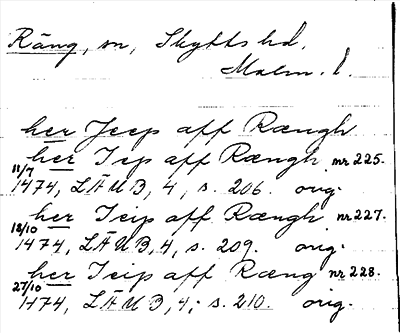 Räng, sn, Skytts hd.
Malm. l.
her Jeip aff Rængh
her Jeip aff Rængh nr 225.
11/7 1474, LÄUB, 4, s. 206. orig.
her Jeip aff Rængh nr 227.
18/10 1474, LÄUB, 4, s. 209. orig.
her Jeip aff Ræng nr 228.
27/10 1474, LÄUB, 4, s. 210. orig.